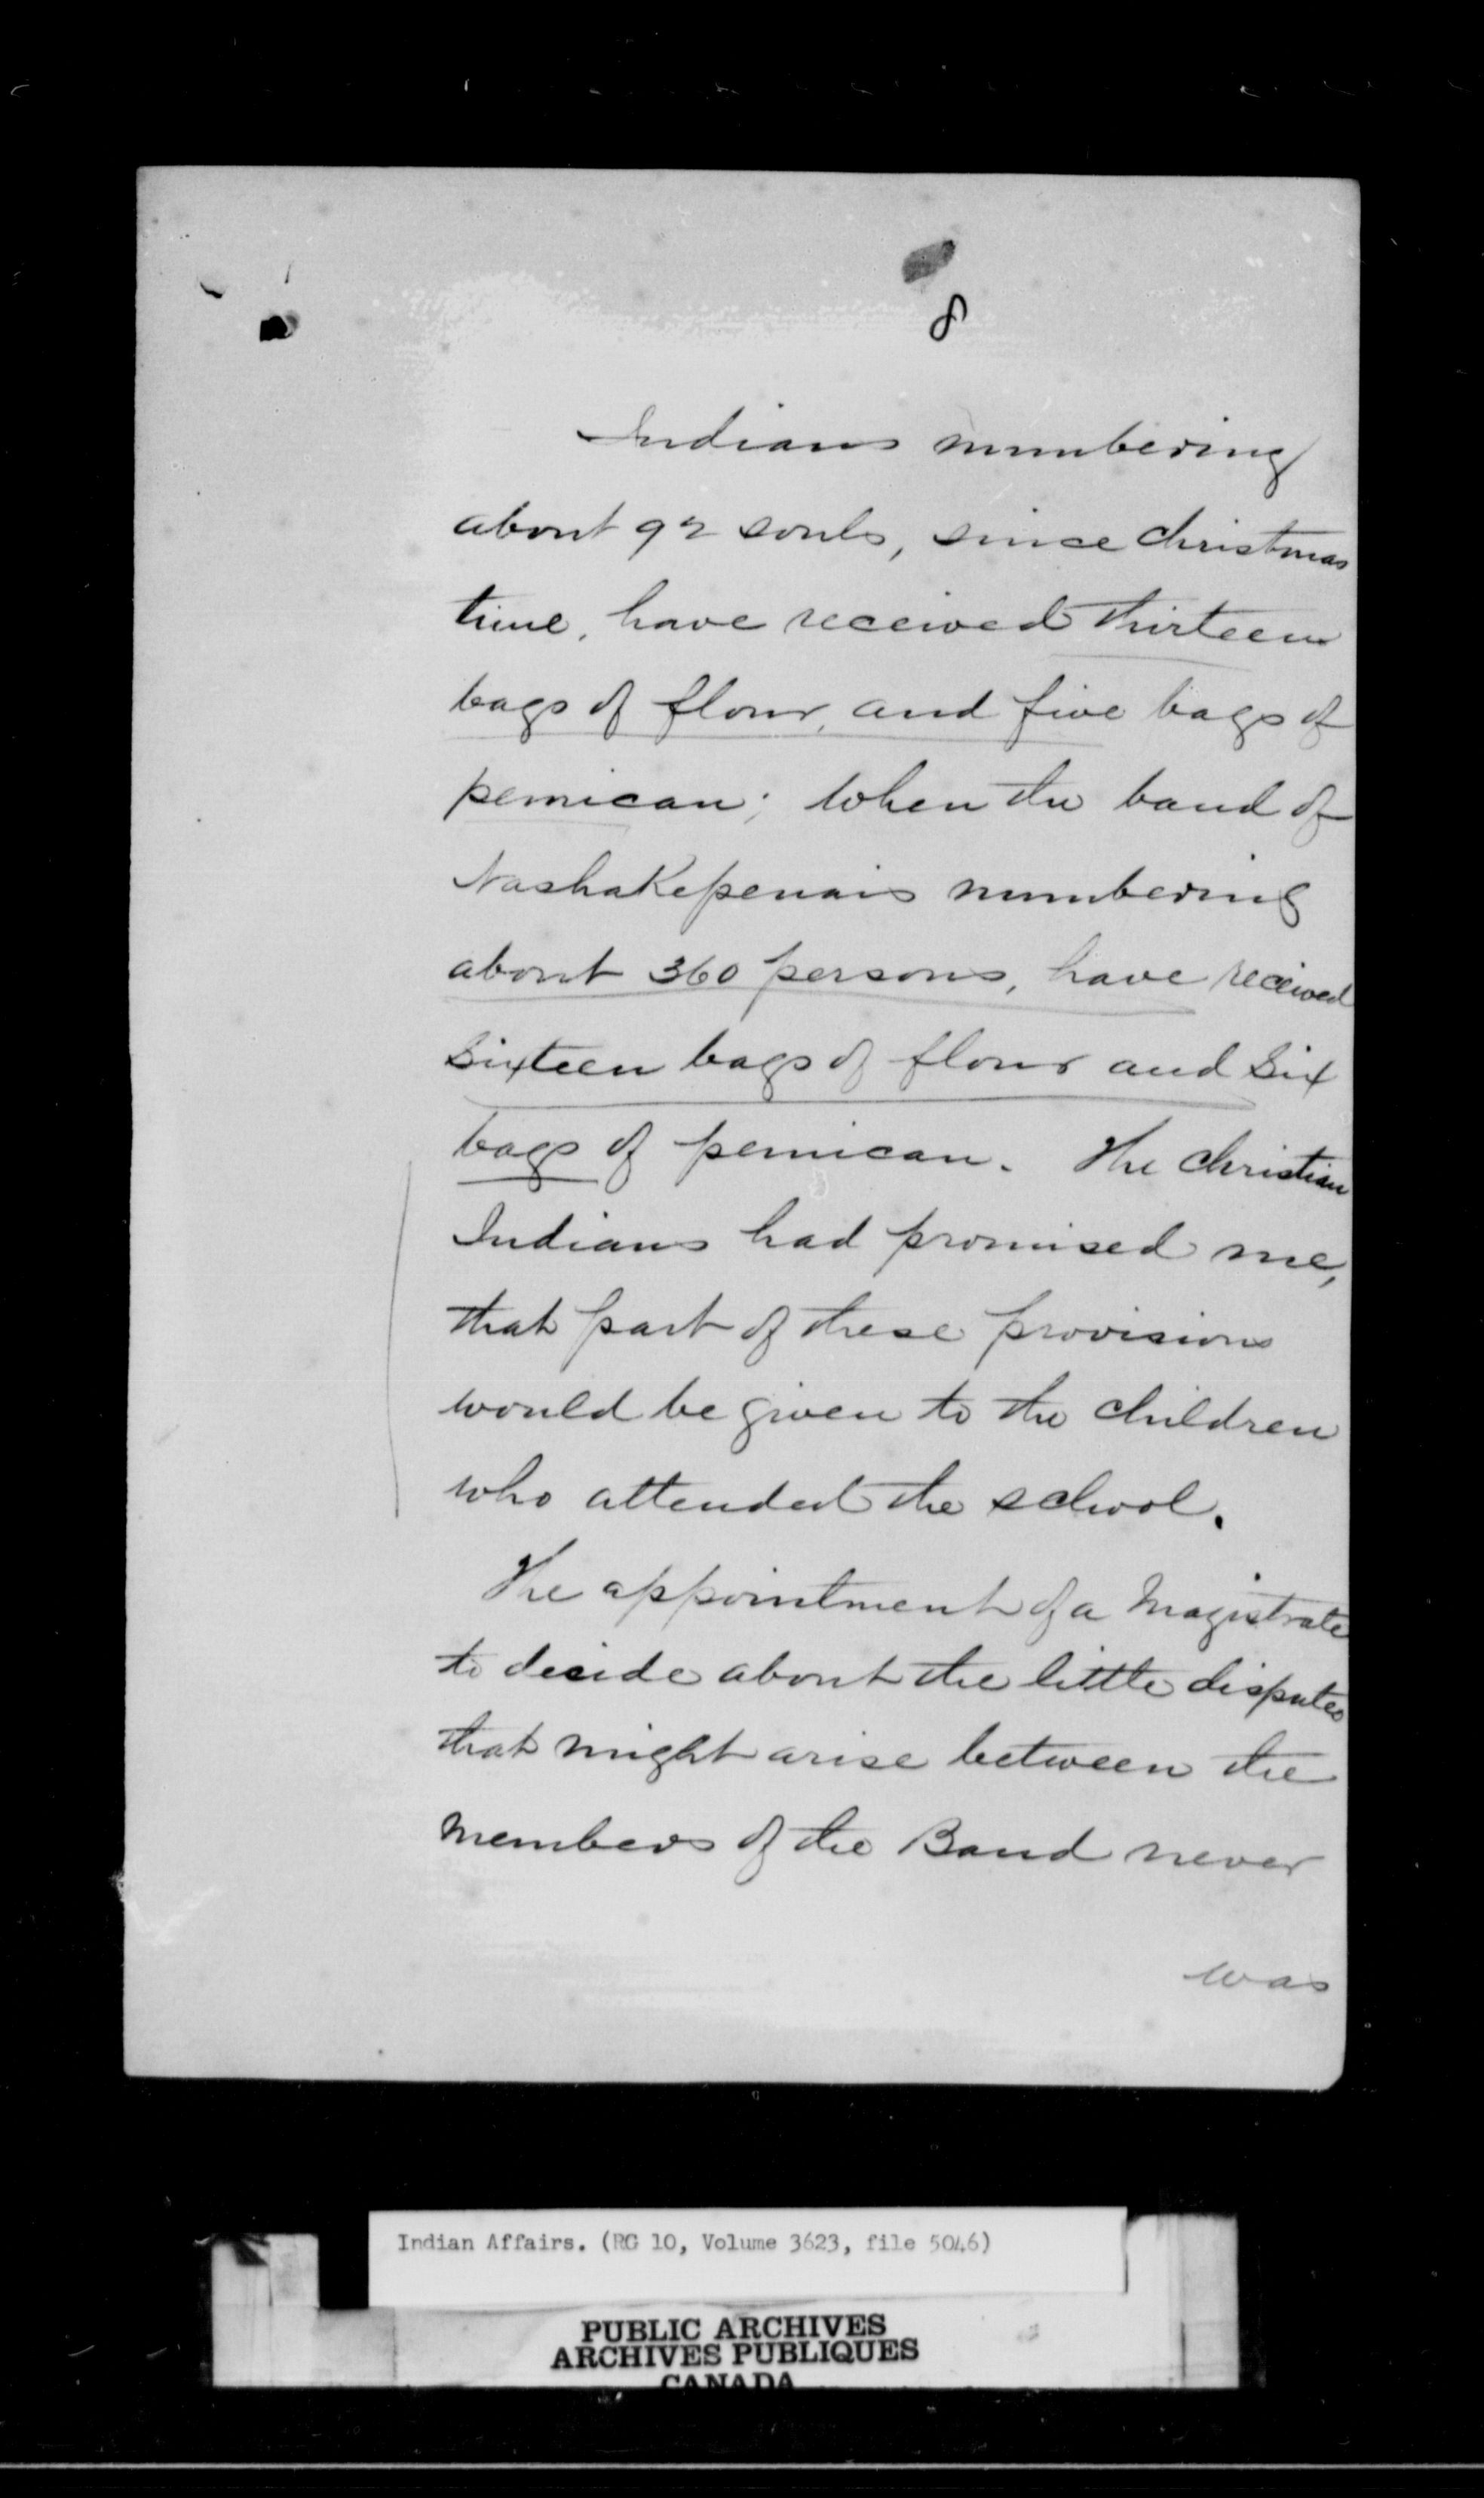 8
Indians numbering
about 92 souls, since christmas
time, have received thirteen
bags of flour, and five bags of
pemican; when the band of
Nashakepenais numbering
about 360 persons, have received
sixteen bags of flour and six
bags of pemican. The christian
Indians had promised me,
that part of these provisions
would be given to the children
who attended the school.
The appointment of a Magistrate
to decide about the little disputes
that might arise between the
members of the Band never
was
Indian Affairs. (RG 10, Volume 3623, file 5046)
PUBLIC ARCHIVES
ARCHIVES PUBLIQUES
CANADA